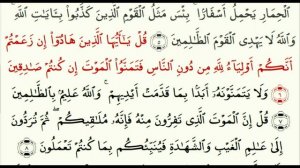 ٱلْحِمَارِ يَحْمِلُ أَسْفَارًۢا ۚ بِئْسَ مَثَلُ ٱلْقَوْمِ ٱلَّذِينَ كَذَّبُوا۟ بِـَٔايَـٰتِ ٱللَّهِ ۚ
وَٱللَّهُ لَا يَهْدِى ٱلْقَوْمَ ٱلظَّـٰلِمِينَ ۝ قُلْ يَـٰٓأَيُّهَا ٱلَّذِينَ هَادُوٓا۟ إِن زَعَمْتُمْ
أَنَّكُمْ أَوْلِيَآءُ لِلَّهِ مِن دُونِ ٱلنَّاسِ فَتَمَنَّوُا۟ ٱلْمَوْتَ إِن كُنتُمْ صَـٰدِقِينَ
۝ وَلَا يَتَمَنَّوْنَهُۥٓ أَبَدًۢا بِمَا قَدَّمَتْ أَيْدِيهِمْ ۚ وَٱللَّهُ عَلِيمٌۢ بِٱلظَّـٰلِمِينَ
۝ قُلْ إِنَّ ٱلْمَوْتَ ٱلَّذِى تَفِرُّونَ مِنْهُ فَإِنَّهُۥ مُلَـٰقِيكُمْ ۖ ثُمَّ تُرَدُّونَ
إِلَىٰ عَـٰلِمِ ٱلْغَيْبِ وَٱلشَّهَـٰدَةِ فَيُنَبِّئُكُم بِمَا كُنتُمْ تَعْمَلُونَ